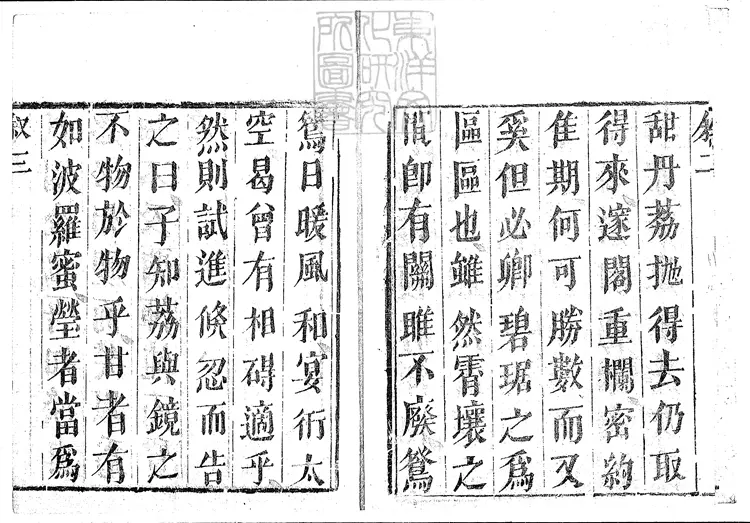 叙二
甜丹荔拋得去仍取
得來邃閣重欄密約
佳期何可勝數而又
奚但必卿碧琚之爲
區區也雖然霄壤之
間卽有關雎不廢鴛
鴦日暖風和宴衎太
空曷曾有相碍適乎
然則試進倏忽而告
之曰子知荔與鏡之
不物於物乎甘者有
如波羅蜜瑩者當爲
叙三
東洋文
化研究
所圖書